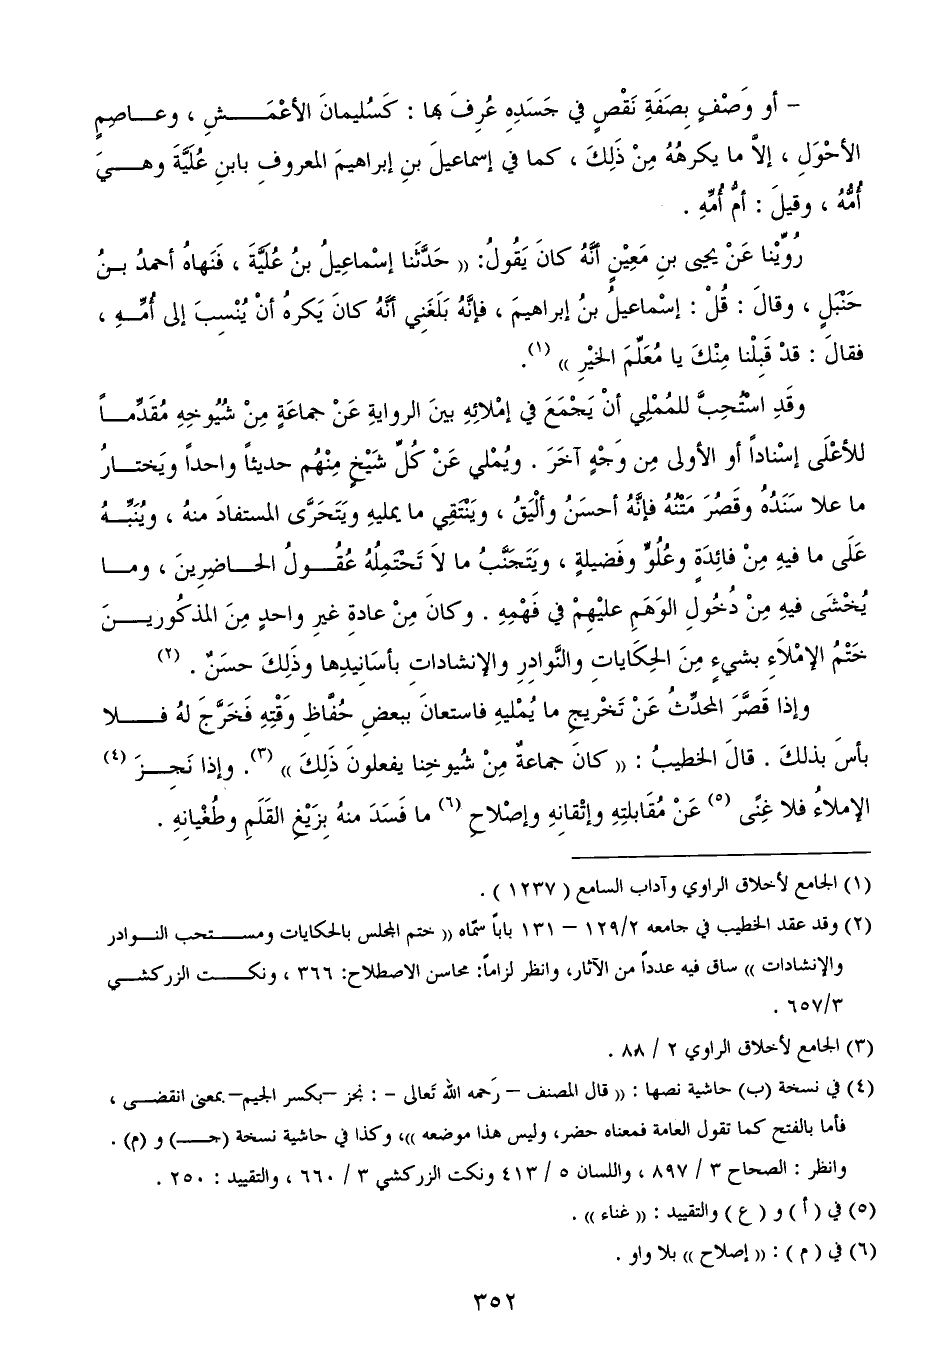 – أو وَصْفٍ بِصَفَةِ نَقْصٍ في جَسَدِهِ عُرِفَ بها : كَسُليمانَ الأعْمَـــشِ ، وعــاصِمٍ
الأحْوَلِ ، إلاَّ ما يكرهُهُ مِنْ ذَلِكَ ، كما في إسماعيلَ بنِ إبراهيمَ المعروفِ بابنِ عُلَيَّةَ وهــيَ
أُمُّهُ ، وقيلَ : أمُّ أُمِّهِ .
رُوِّيْنا عَنْ يحيى بنِ مَعِيْنٍ أنَّهُ كانَ يَقُولُ: (( حَدَّثَنا إسْماعِيلُ بنُ عُلَيَّةَ ، فَنَهاهُ أحمدُ بــنُ
حَنْبَلٍ ، وقالَ : قُلْ : إسْماعيلُ بنُ إبراهيمَ ، فإنَّهُ بَلَغَني أنَّهُ كانَ يَكرهُ أنْ يُنْسبَ إلى أُمِّــهِ ،
فقالَ : قدْ قَبِلْنا مِنْكَ يا مُعَلِّمَ الخَيْرِ )) (١).
وقَدِ اسْتُحِبَّ للمُمْلِي أنْ يَجْمَعَ في إمْلائِهِ بينَ الروايةِ عَنْ جماعةٍ مِنْ شُيُوخِهِ مُقَدِّمــاً
للأعْلَى إسْناداً أو الأولى مِن وَجْهٍ آخَرَ . ويُمْلي عَنْ كُلِّ شَيْخٍ مِنْهُم حديثاً واحداً ويَختــارُ
ما علا سَنَدُهُ وقَصُرَ مَتْنُهُ فإنَّهُ أحسَنُ وألْيَقُ ، ويَنْتَقِي ما يمليهِ ويَتَحَرَّى المستفادَ منهُ ، ويُنَبِّــهُ
عَلَى ما فيهِ مِنْ فائِدَةٍ وعُلُوٍّ وفَضيلةٍ ، ويَتَجنَّبُ ما لاَ تَحْتَمِلُهُ عُقُــولُ الحــاضِرِينَ ، ومــا
يُخْشَى فيهِ مِنْ دُخُولِ الوَهَمِ عليْهِمْ في فَهْمِهِ . وكانَ مِنْ عادةِ غيرِ واحدٍ مِنَ المذكوريــنَ
خَتْمُ الإمْلاَءِ بشيءٍ مِنَ الحِكَاياتِ والنَّوادِرِ والإنشاداتِ بأسَانِيدِها وذَلِكَ حسَنٌ . (٢)
وإذا قَصَّرَ المحدِّثُ عَنْ تَخْريجِ ما يُمْليهِ فاستعانَ ببعضِ حُفَّاظِ وَقْتِهِ فَخَرَّجَ لهُ فــلا
بأسَ بذلكَ . قالَ الخطيبُ : (( كانَ جماعةٌ مِنْ شيوخِنا يفعلونَ ذَلِكَ )) (٣). وإذا نَجِــزَ (٤)
الإملاءُ فلا غِنًى (٥) عَنْ مُقابلتِهِ وإتْقانِهِ وإصْلاحِ (٦) ما فَسَدَ منهُ بِزَيْغِ القَلَمِ وطُغْيانِهِ .
(١) الجامع لأخلاق الراوي وآداب السامع ( ١٢٣٧ ) .
(٢) وقد عقد الخطيب في جامعه ١٢٩/٢ – ١٣١ باباً سمّاه (( ختم المجلس بالحكايات ومســتحب النــوادر
والإنشادات )) ساق فيه عدداً من الآثار، وانظر لزاماً: محاسن الاصطلاح: ٣٦٦ ، ونكــت الزركشي
٦٥٧/٣ .
(٣) الجامع لأخلاق الراوي ٢ / ٨٨ .
(٤) في نسخة (ب) حاشية نصها : (( قال المصنف – رَحمه الله تَعالى – : نجز –بكسر الجيم– بمعنى انقضــى ،
فأما بالفتح كما تقول العامة فمعناه حضر، وليس هذا موضعه ))، وكذا في حاشية نسخة (جــ) و (م) .
وانظر : الصحاح ٣ / ٨٩٧ ، واللسان ٥ / ٤١٣ ونكت الزركشي ٣ / ٦٦٠ ، والتقييد : ٢٥٠ .
(٥) في ( أ ) و ( ع ) والتقييد : (( غناء )) .
(٦) في ( م ) : (( إصلاح )) بلا واو .
٣٥٢